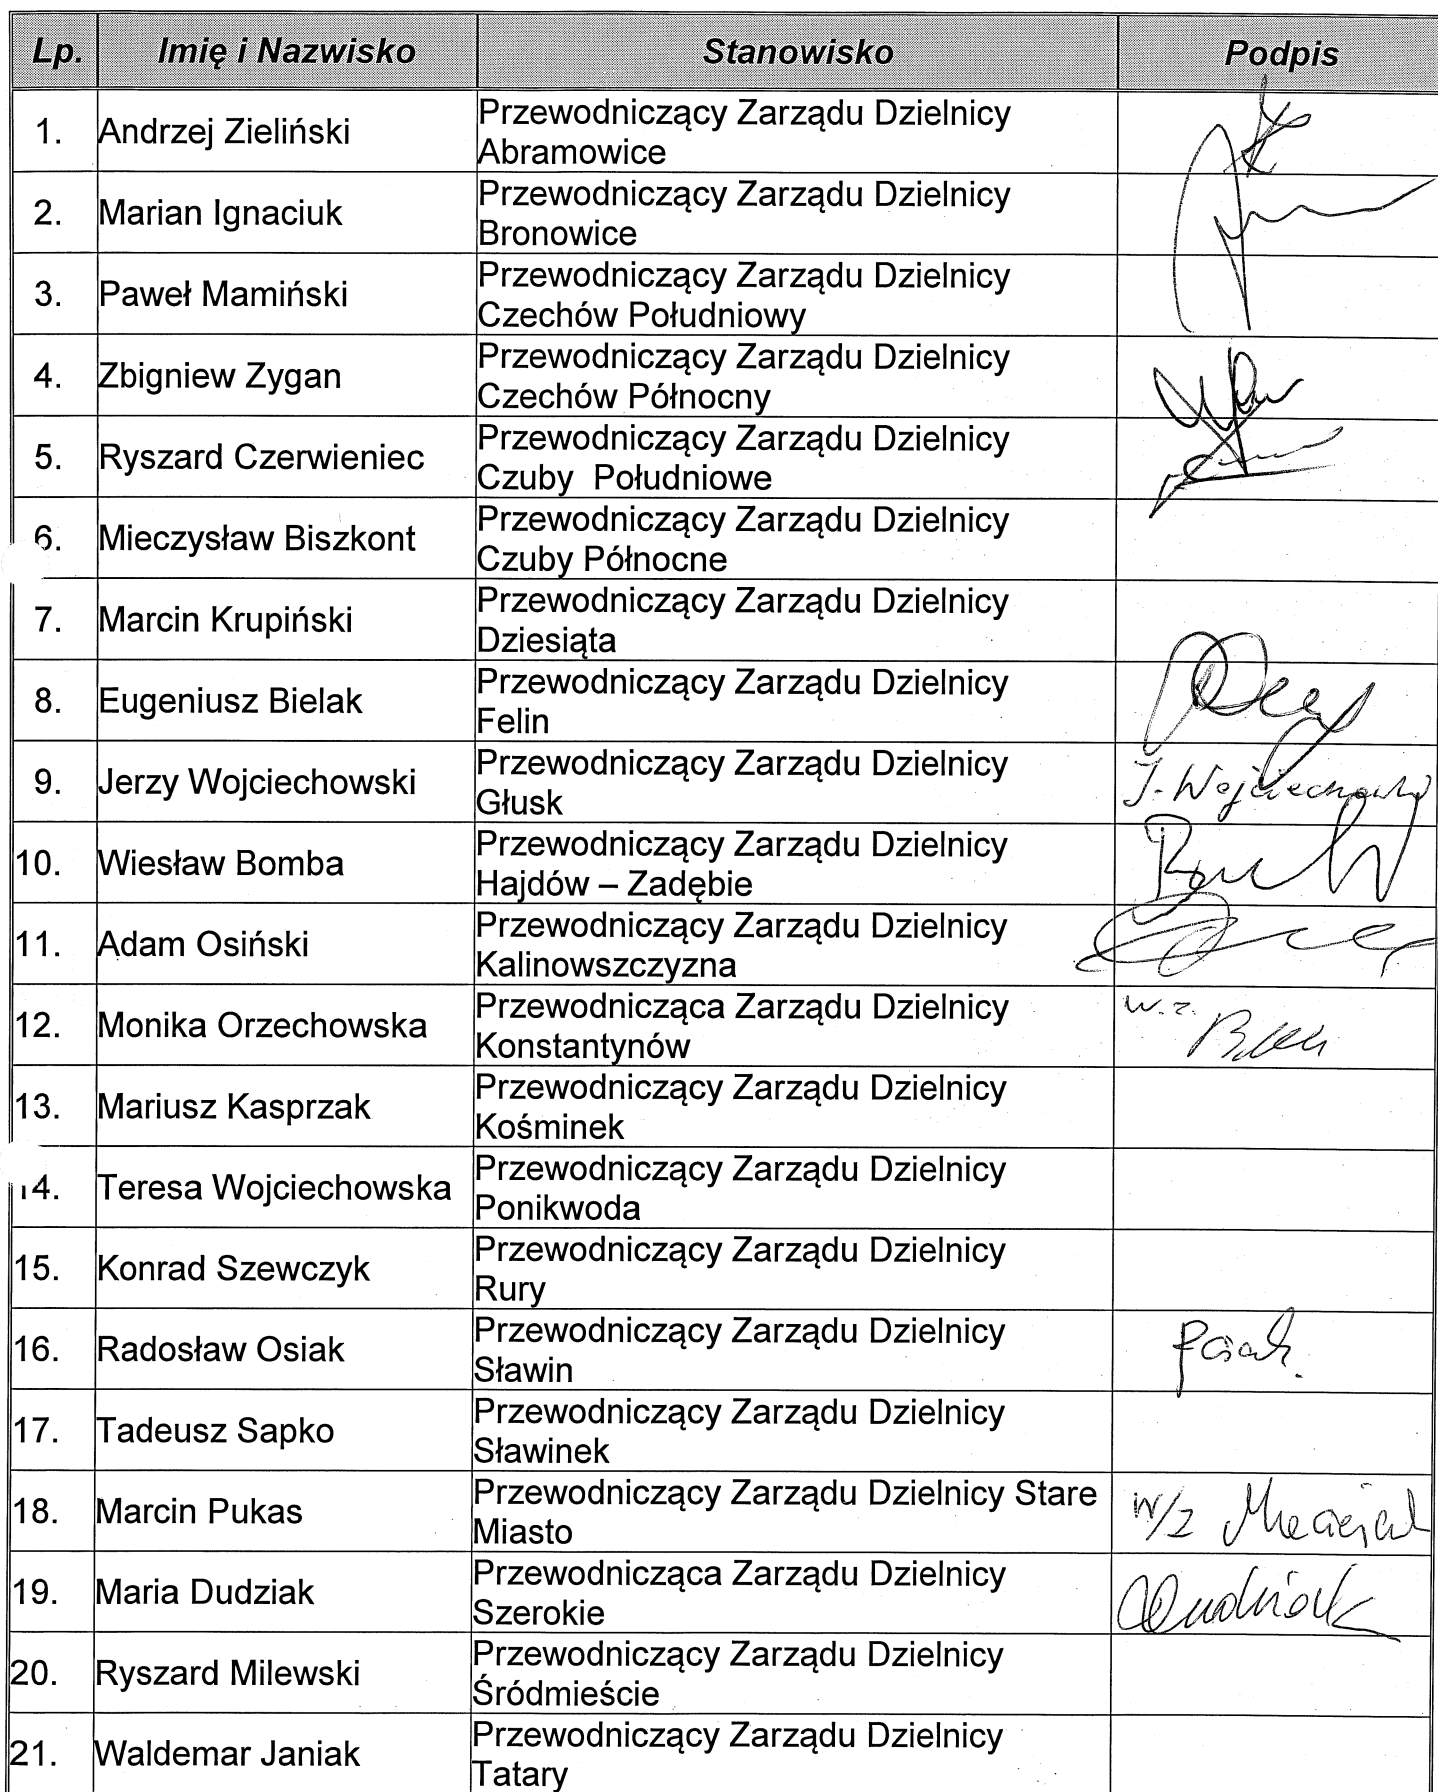 Lp. Imię i Nazwisko Stanowisko Podpis
1. Andrzej Zieliński Przewodniczący Zarządu Dzielnicy
Abramowice
2. Marian Ignaciuk Przewodniczący Zarządu Dzielnicy
Bronowice
3. Paweł Mamiński Przewodniczący Zarządu Dzielnicy
Czechów Południowy
4. Zbigniew Zygan Przewodniczący Zarządu Dzielnicy
Czechów Północny
5. Ryszard Czerwieniec Przewodniczący Zarządu Dzielnicy
Czuby Południowe
6. Mieczysław Biszkont Przewodniczący Zarządu Dzielnicy
Czuby Północne
7. Marcin Krupiński Przewodniczący Zarządu Dzielnicy
Dziesiąta
8. Eugeniusz Bielak Przewodniczący Zarządu Dzielnicy
Felin
9. Jerzy Wojciechowski Przewodniczący Zarządu Dzielnicy
Głusk J. Wojciechowski
10. Wiesław Bomba Przewodniczący Zarządu Dzielnicy
Hajdów – Zadębie
11. Adam Osiński Przewodniczący Zarządu Dzielnicy
Kalinowszczyzna
12. Monika Orzechowska Przewodnicząca Zarządu Dzielnicy w.z.
Konstantynów
13. Mariusz Kasprzak Przewodniczący Zarządu Dzielnicy
Kośminek
14. Teresa Wojciechowska Przewodniczący Zarządu Dzielnicy
Ponikwoda
15. Konrad Szewczyk Przewodniczący Zarządu Dzielnicy
Rury
16. Radosław Osiak Przewodniczący Zarządu Dzielnicy
Sławin
17. Tadeusz Sapko Przewodniczący Zarządu Dzielnicy
Sławinek
18. Marcin Pukas Przewodniczący Zarządu Dzielnicy Stare w/z
Miasto
19. Maria Dudziak Przewodnicząca Zarządu Dzielnicy
Szerokie
20. Ryszard Milewski Przewodniczący Zarządu Dzielnicy
Śródmieście
21. Waldemar Janiak Przewodniczący Zarządu Dzielnicy
Tatary